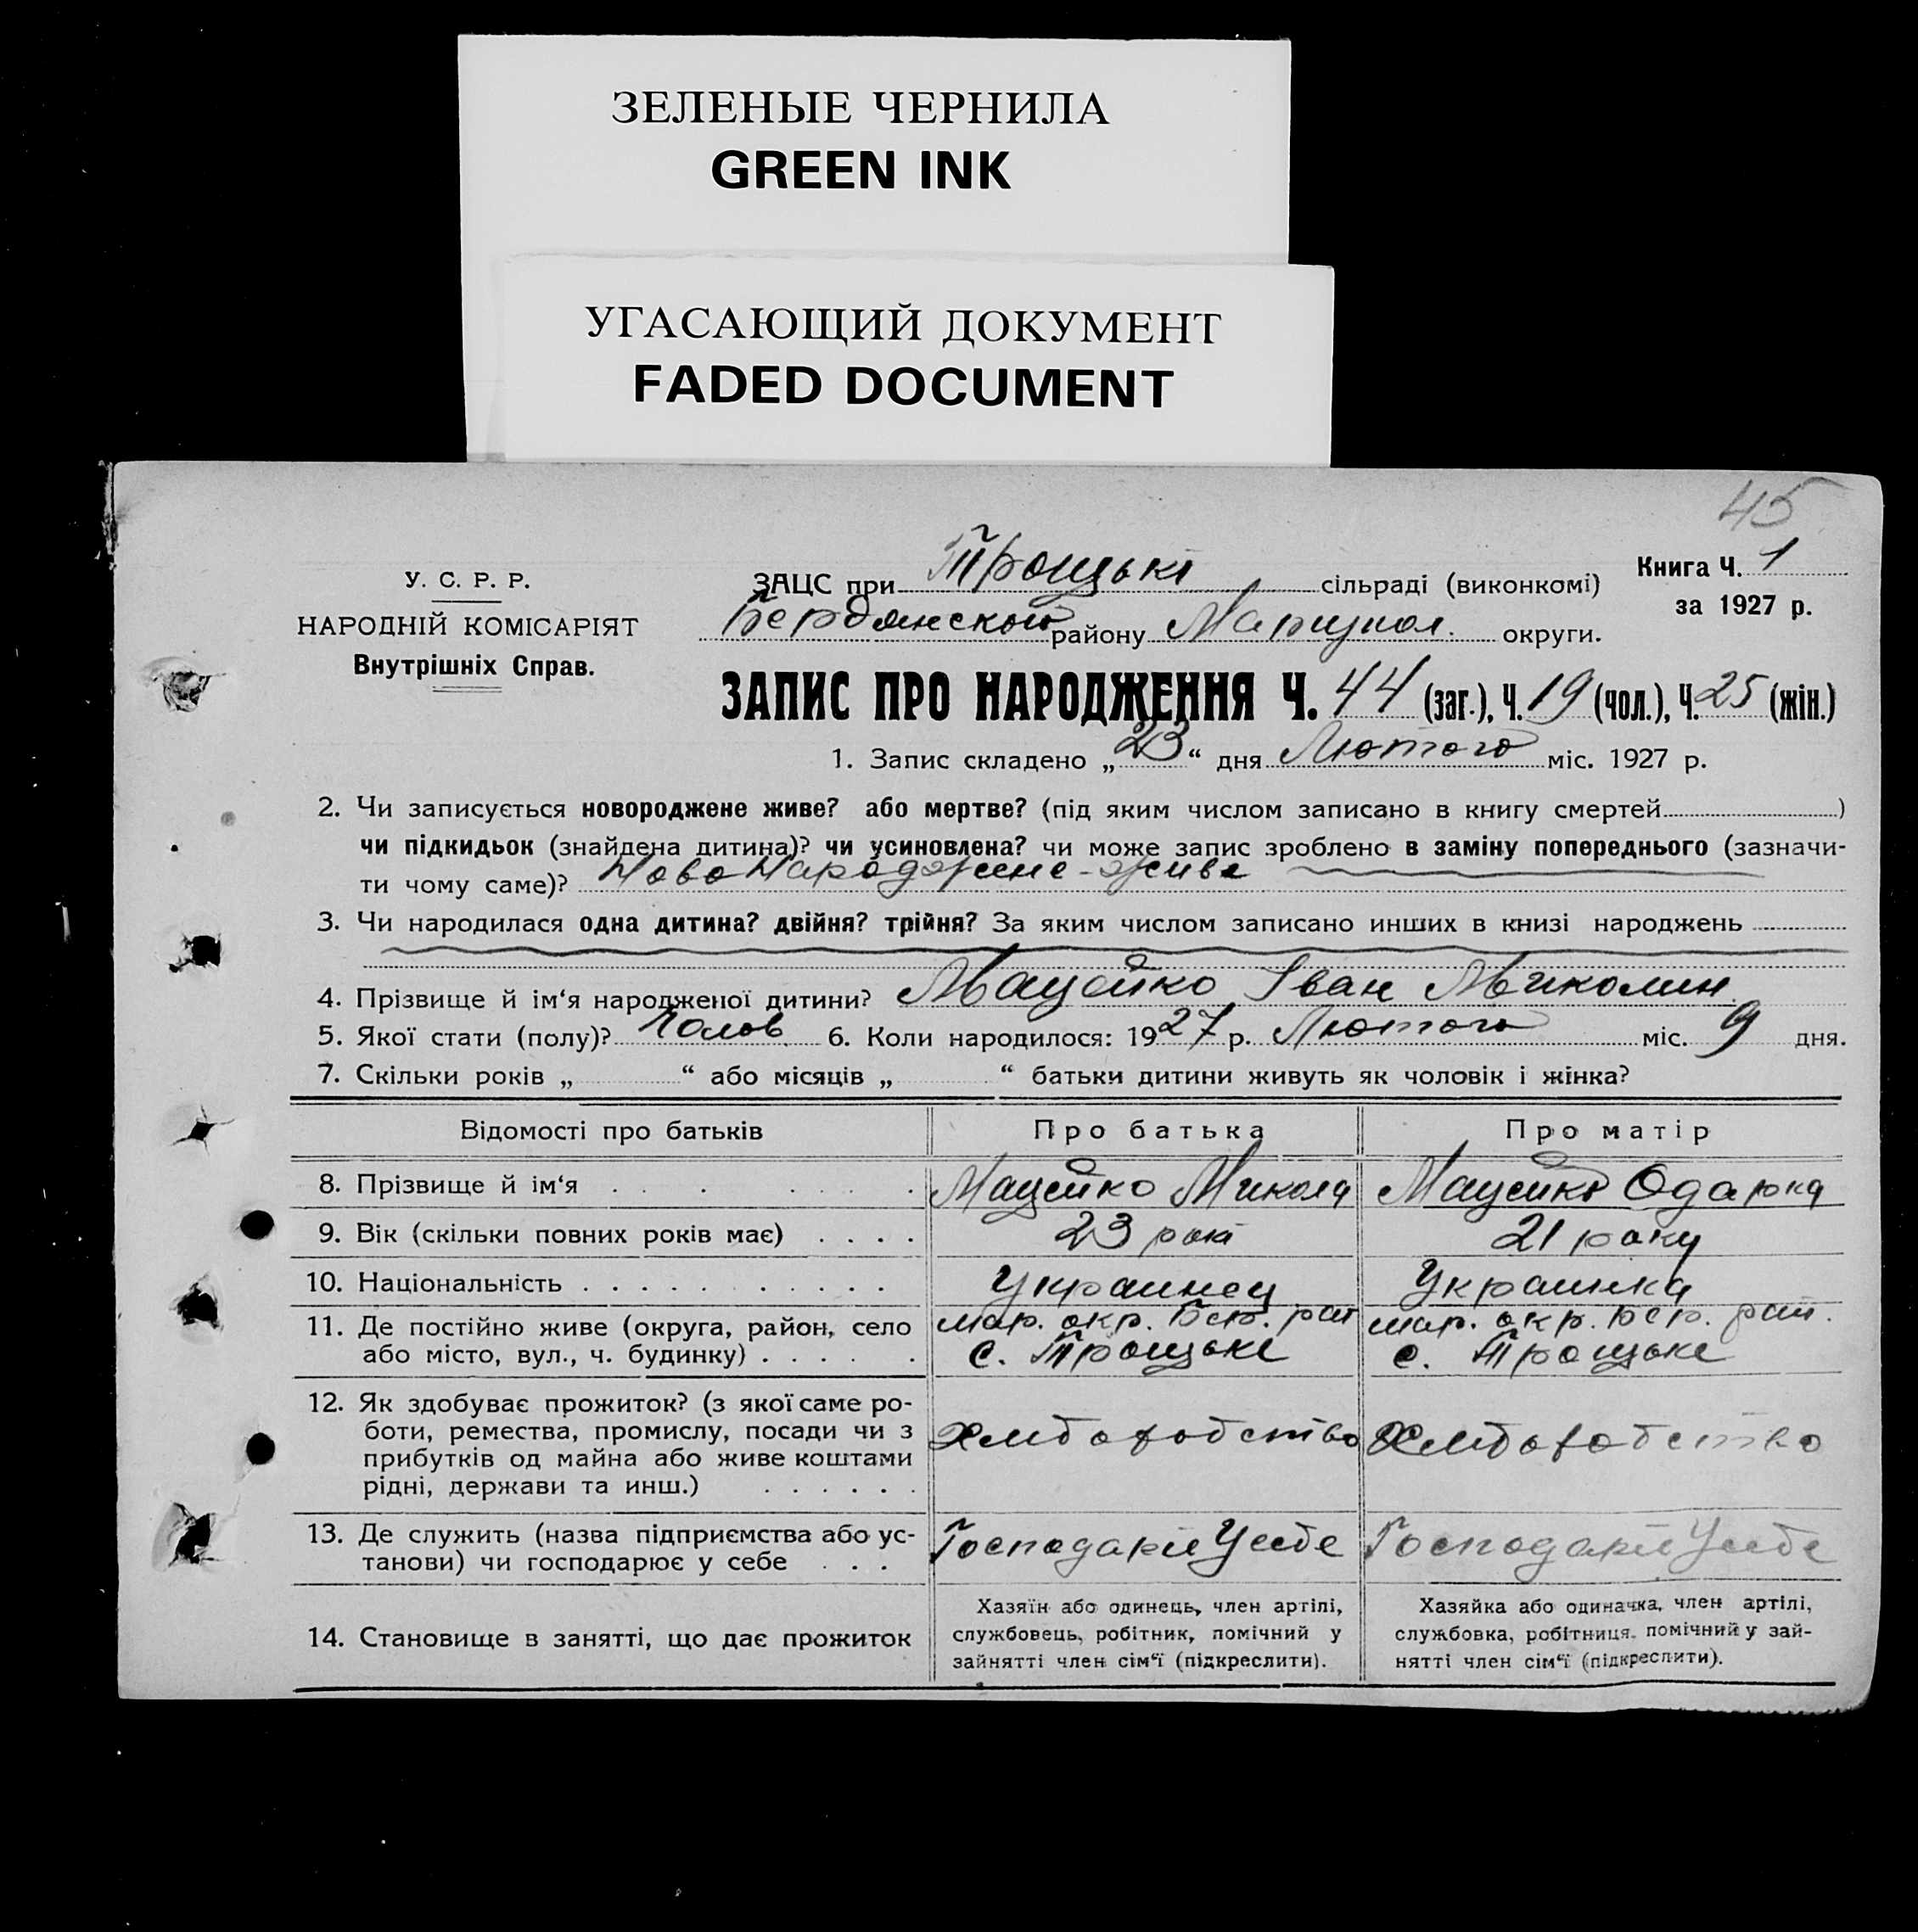 ЗЕЛЕНЫЕ ЧЕРНИЛА
GREEN INK
УГАСАЮЩИЙ ДОКУМЕНТ
FADED DOCUMENT
45
У. С. Р. Р.
НАРОДНІЙ КОМІСАРІЯТ
Внутрішніх Справ.
ЗАЦС при Троцькі сільраді (виконкомі)
Бердянской району Мариупол. округи.
Книга Ч. 1
за 1927 р.
ЗАПИС ПРО НАРОДЖЕННЯ Ч. 44 (заг.), Ч. 19 (чол.), Ч. 25 (жін.)
1. Запис складено „ 23 “ дня Лютого міс. 1927 р.
2. Чи записується новороджене живе? або мертве? (під яким числом записано в книгу смертей )
чи підкидьок (знайдена дитина)? чи усиновлена? чи може запис зроблено в заміну попереднього (зазначи-
ти чому саме)? Ново Народжене - живе
3. Чи народилася одна дитина? двійня? трійня? За яким числом записано инших в книзі народжень
4. Прізвище й ім‘я народженої дитини? Мацейко Іван Миколин
5. Якої стати (полу)? Чолов. 6. Коли народилося: 1927 р. Лютого міс. 9 дня.
7. Скільки років „ “ або місяців „ “ батьки дитини живуть як чоловік і жінка?
Відомості про батьків Про батька Про матір
8. Прізвище й ім‘я Мацейко Микола Мацейко Одарка
9. Вік (скільки повних років має) 23 рокі 21 року
10. Національність Украинец Украинка
11. Де постійно живе (округа, район, село Мар. окр. Бер. рай Мар. окр. Бер. рай.
або місто, вул., ч. будинку) с. Троцьке с. Троцьке
12. Як здобуває прожиток? (з якої саме ро-
боти, ремества, промислу, посади чи з
прибутків од майна або живе коштами
рідні, держави та инш.)
Хлиборобство Хлиборобство
13. Де служить (назва підприємства або ус-
танови) чи господарює у себе
Господарий Усебе Господарий Усебе
14. Становище в занятті, що дає прожиток
Хазяїн або одинець, член артілі,
службовець, робітник, помічний у
зайнятті член сім‘ї (підкреслити).
Хазяйка або одиначка, член артілі,
службовка, робітниця, помічний у зай-
нятті член сім‘ї (підкреслити).